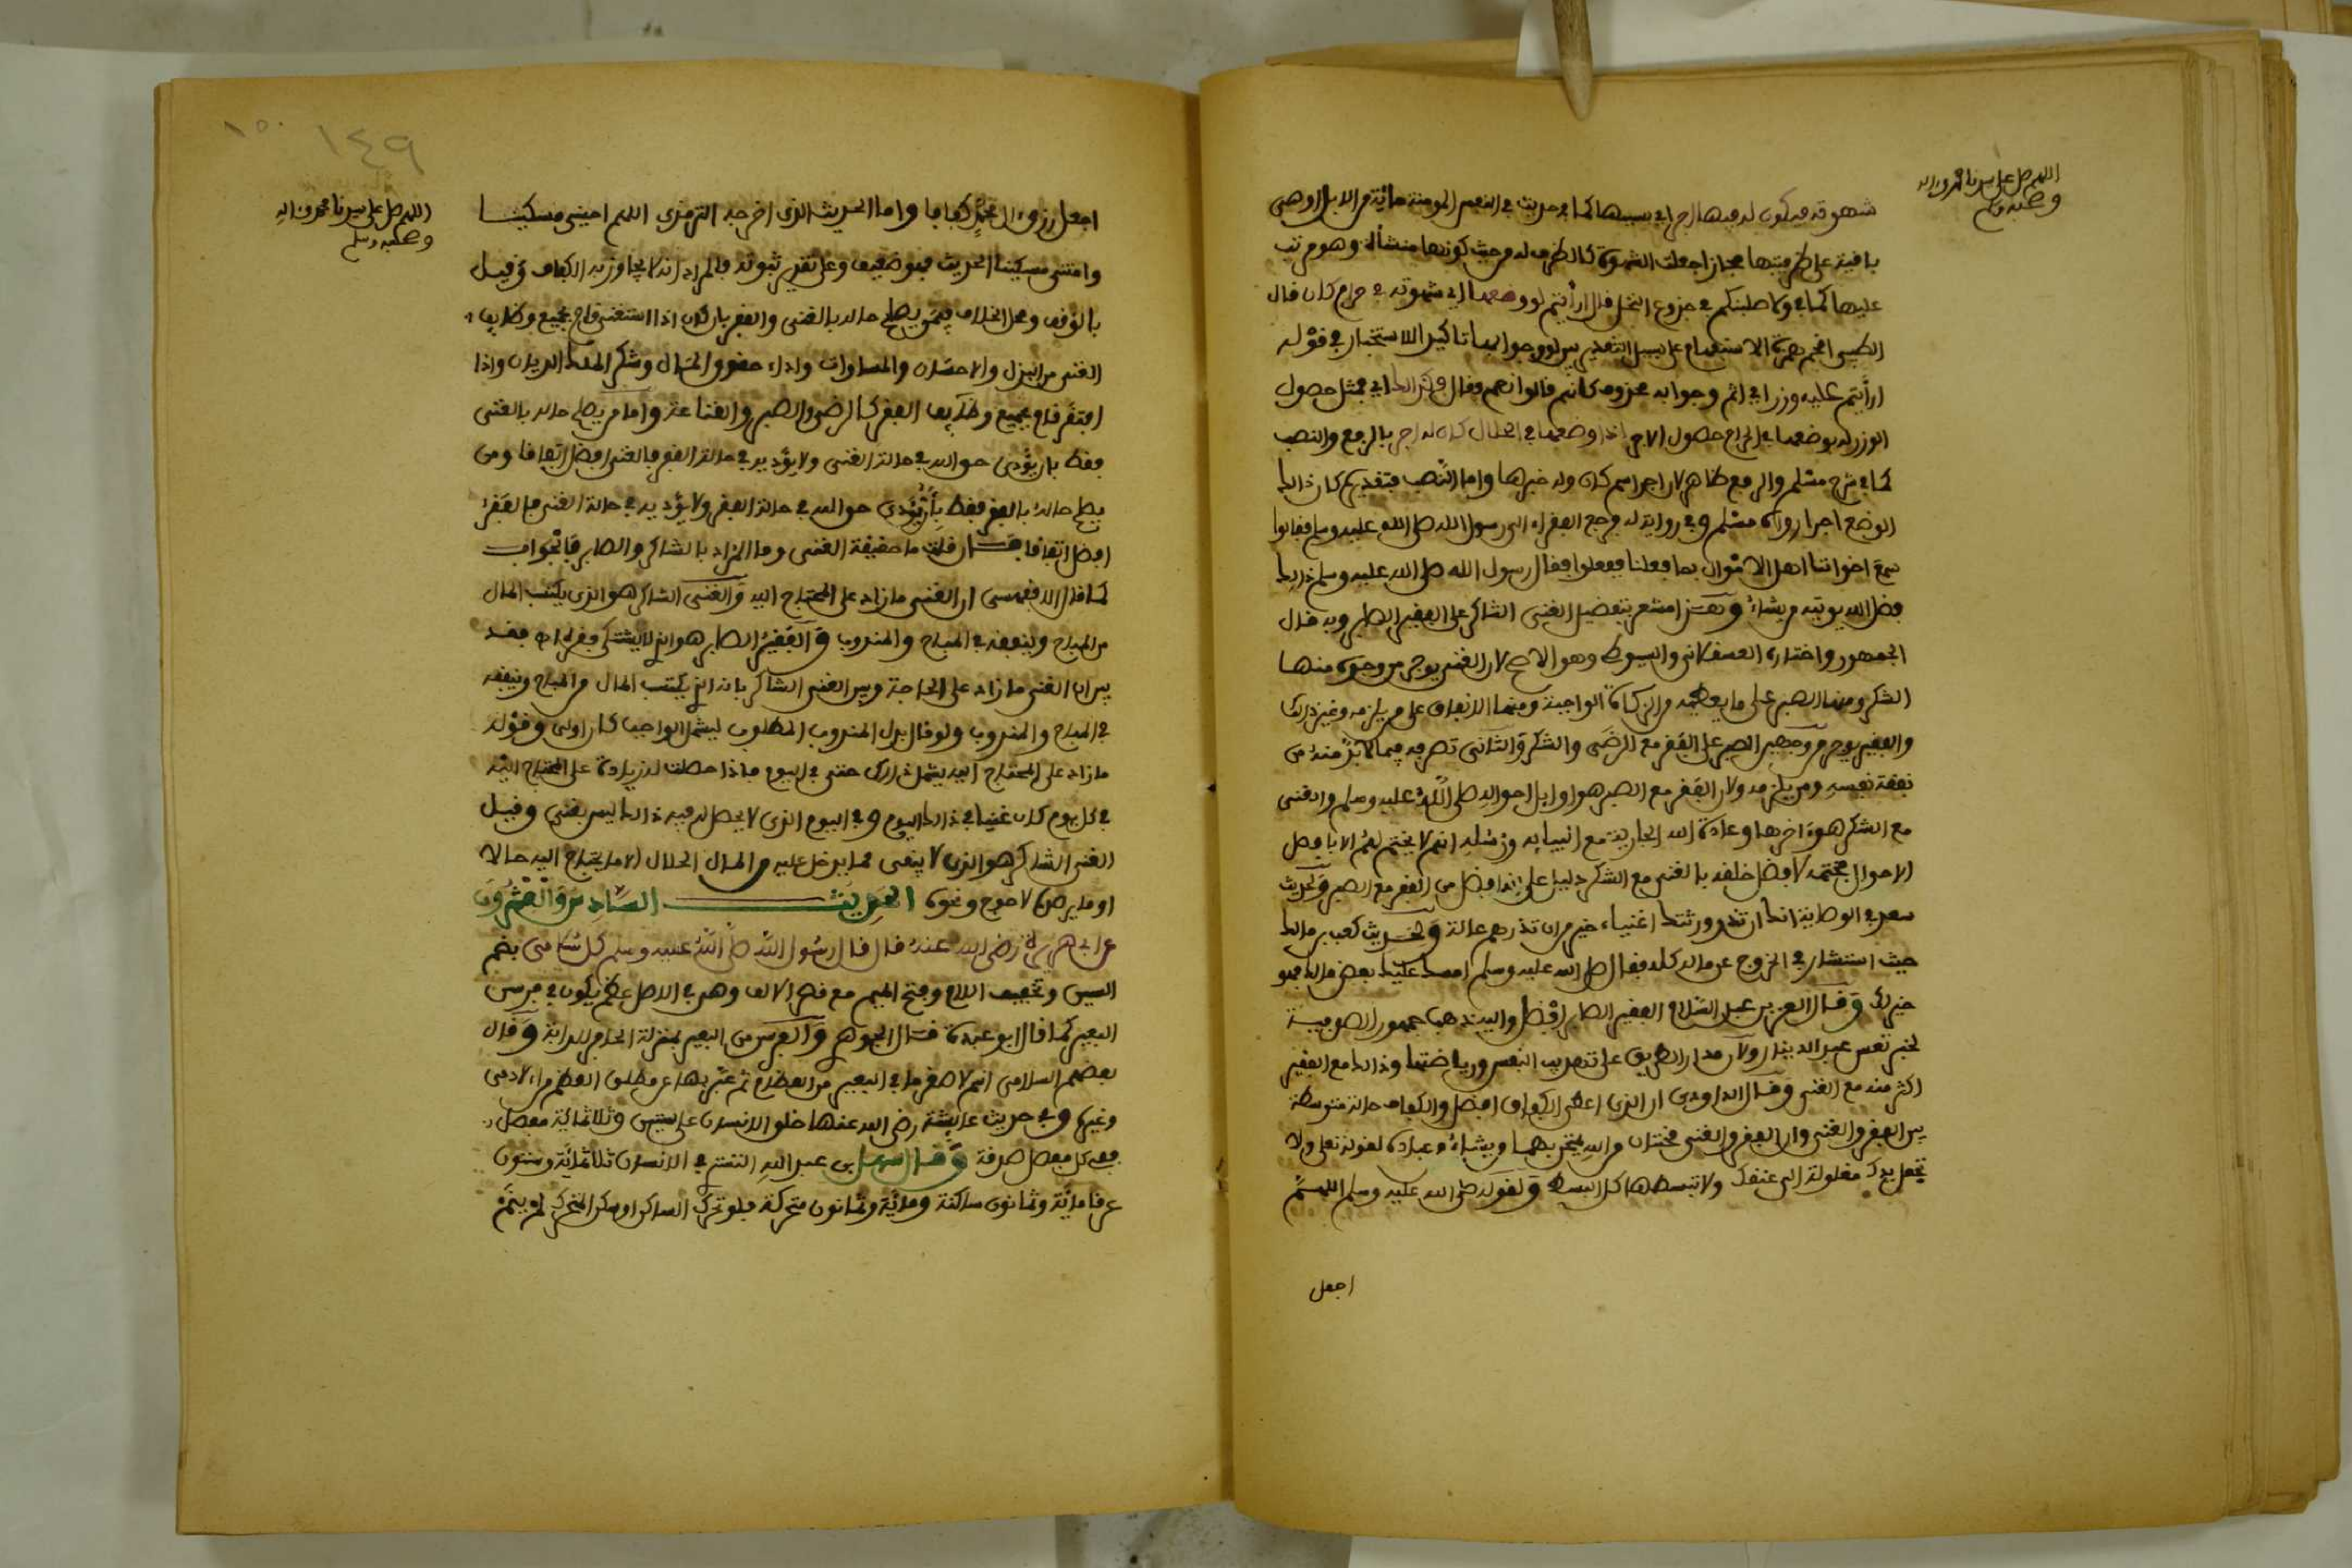 اللهم صل على سيدنا محمد وآله
وصحبه وسلم
شهوته فيكون له فيها اجر اي بسببها كما في حديث في النفس المومنة مائة من الابل او هي
باقية على ظرفيتها مجازا جعلت الشهوة كالظرف له من حيث كونها منشأله وهو مرتب
عليها كما في ولاصلبنكم في جذوع النخل قال ارأيتم لو وضعها اي شهوته في حرام كان قال
الطيبي اقحم همزة الاستفهام على سبيل التقرير بين لو وجوابها تاكيدا للاستخبار في قوله
ارأيتم عليه وزر اي اثم وجوابه محذوف كانهم قالوا نعم وقال فكذالك اي فمثل حصول
الوزر له بوضعها في الحرام حصول الاجر اذا وضعها في الحلال كان له اجر بالرفع والنصب
كما في شرح مسلم والرفع ظاهر لان اجر اسم كان وله خبرها واما النصب فبتقدير كان ذالك
الوضع اجرا رواه مسلم وفي رواية له فرجع الفقراء الى رسول الله صلى الله عليه وسلم فقالوا
سمع اخواننا اهل الاموال بما فعلنا ففعلوا فقال رسول الله صلى الله عليه وسلم ذالك
فضل الله يوتيه من يشاء وهذا مشعر بتفضيل الغنى الشاكر على الفقير الصابر وبه قال
الجمهور واختاره العسقلاني والسيوطي وهو الاصح لان الغني يوجر من وجوه منها
الشكر ومنها الصبر على ما يعطيه من الزكاة الواجبة ومنها الانفاق على من يلزمه وغير ذالك
والفقير يوجر من وجهين الصبر على الفقر مع الرضى والشكر والثاني تصرفه فيما لا بد منه من
نفقة نفسه ومن يلزمه ولان الفقر مع الصبر هو اوايل احواله صلى الله عليه وسلم والغنى
مع الشكر هو اخرها وعادة الله الجارية مع انبيائه ورسله انه لا يختم لهم الا بافضل
الاحوال فختمه لافضل خلقه بالغنى مع الشكر دليل على انه افضل من الفقر مع الصبر ولحديث
سعد في الوصاية انك ان تذر ورثتك اغنياء خير من ان تذرهم عالة ولحديث كعب بن مالك
حيث استشار في الخروج عن ماله كله فقال صلى الله عليه وسلم امسك عليك بعض مالك فهو
خير لك وقال العز بن عبد السلام الفقير الصابر افضل واليه ذهب جمهور الصوفية
لخبر تعس عبد الدينار ولان مدار الطريق على تهذيب النفس ورياضتها وذالك مع الفقير
اكثر منه مع الغنى وقال الداودي ان الذي اعطى الكفاف افضل والكفاف حالة متوسطة
بين الفقر والغنى وان الفقر والغنى محنتان من الله يختبر بهما من يشاء من عباده لقوله تعلى ولا
تجعل يدك مغلولة الى عنقك ولا تبسطها كل البسط ولقوله صلى الله عليه وسلم اللهم
اجعل
١٥٠
١٤٩
اللهم صل على سيدنا محمد وآله
وصحبه وسلم
اجعل رزق ءال محمد كفافا واما الحديث الذي اخرجه الترمذي اللهم احيني مسكينا
وامتني مسكينا الحديث فهو ضعيف وعلى تقدير ثبوته فالمراد انه لا يجاوز به الكفاف وقيل
بالوقف ومحل الخلاف فيمن يصلح حاله بالغنى والفقر بان كان اذا استغنى قام بجميع وظايف
الغنى من البذل والاحسان والمساوات واداء حقوق المال وشكر الملك الديان واذا
افتقر قام بجميع وظايف الفقر كالرضى والصبر والقناعة واما من يصلح حاله بالغنى
فقط بان يؤدي حق الله في حالة الغنى ولا يؤديه في حالة الفقر فالغنى افضل اتفاقا ومن
يصلح حاله بالفقر فقط بان يؤدي حق الله في حالة الفقر ولا يؤديه في حالة الغنى فالفقر
افضل اتفاقا فان قلت ما حقيقة الغنى وما المراد بالشاكر والصابر فالجواب
كما قال الاقفهسي ان الغنى ما زاد على المحتاج اليه والغني الشاكر هو الذي يكتسب المال
من المباح وينفقه في المباح والمندوب والفقير الصابر هو الذي لا يشتكي فقره اه فقد
بين ان الغنى ما زاد على الحاجة وبين الغني الشاكر بانه الذي يكتسب المال من المباح وينفقه
في المباح والمندوب ولو قال بدل المندوب المطلوب ليشمل الواجب كان اولى وقوله
ما زاد على المحتاج اليه يشمل ذالك حتى في اليوم فاذا حصلت له زيادة على المحتاج اليه
في كل يوم كان غنيا في ذالك اليوم وفي اليوم الذي لا يحصل له فيه ذالك ليس بغني وقيل
الغني الشاكر هو الذي لا يبقي مما يدخل عليه من المال الحلال الا ما يحتاج اليه حالا
او ما يرصده لاحوج ونحوه الحديث السادس والعشرون
عن ابي هريرة رضي الله عنه قال قال رسول الله صلى الله عليه وسلم كل سلامى بضم
السين وتخفيف اللام وفتح الميم مع قصر الالف وهي في الاصل عظم يكون في فرسن
البعير كما قال ابو عبيدة قال الجوهري والفرسن من البعير بمنزلة الحافر للدابة وقال
بعضهم السلامى اسم لاصغر ما في البعير من العظام ثم عبر بها عن مطلق العظم من الادمي
وغيره وفي حديث عايشة رضي الله عنها خلق الانسان على ستين وثلاثمائة مفصل
ففي كل مفصل صدقة وقال سهل بن عبد الله التستري في الانسان ثلاثمائة وستون
عرقا مائة وثمانون ساكنة ومائة وثمانون متحركة فلو تحرك الساكن او سكن المتحرك لم ينم